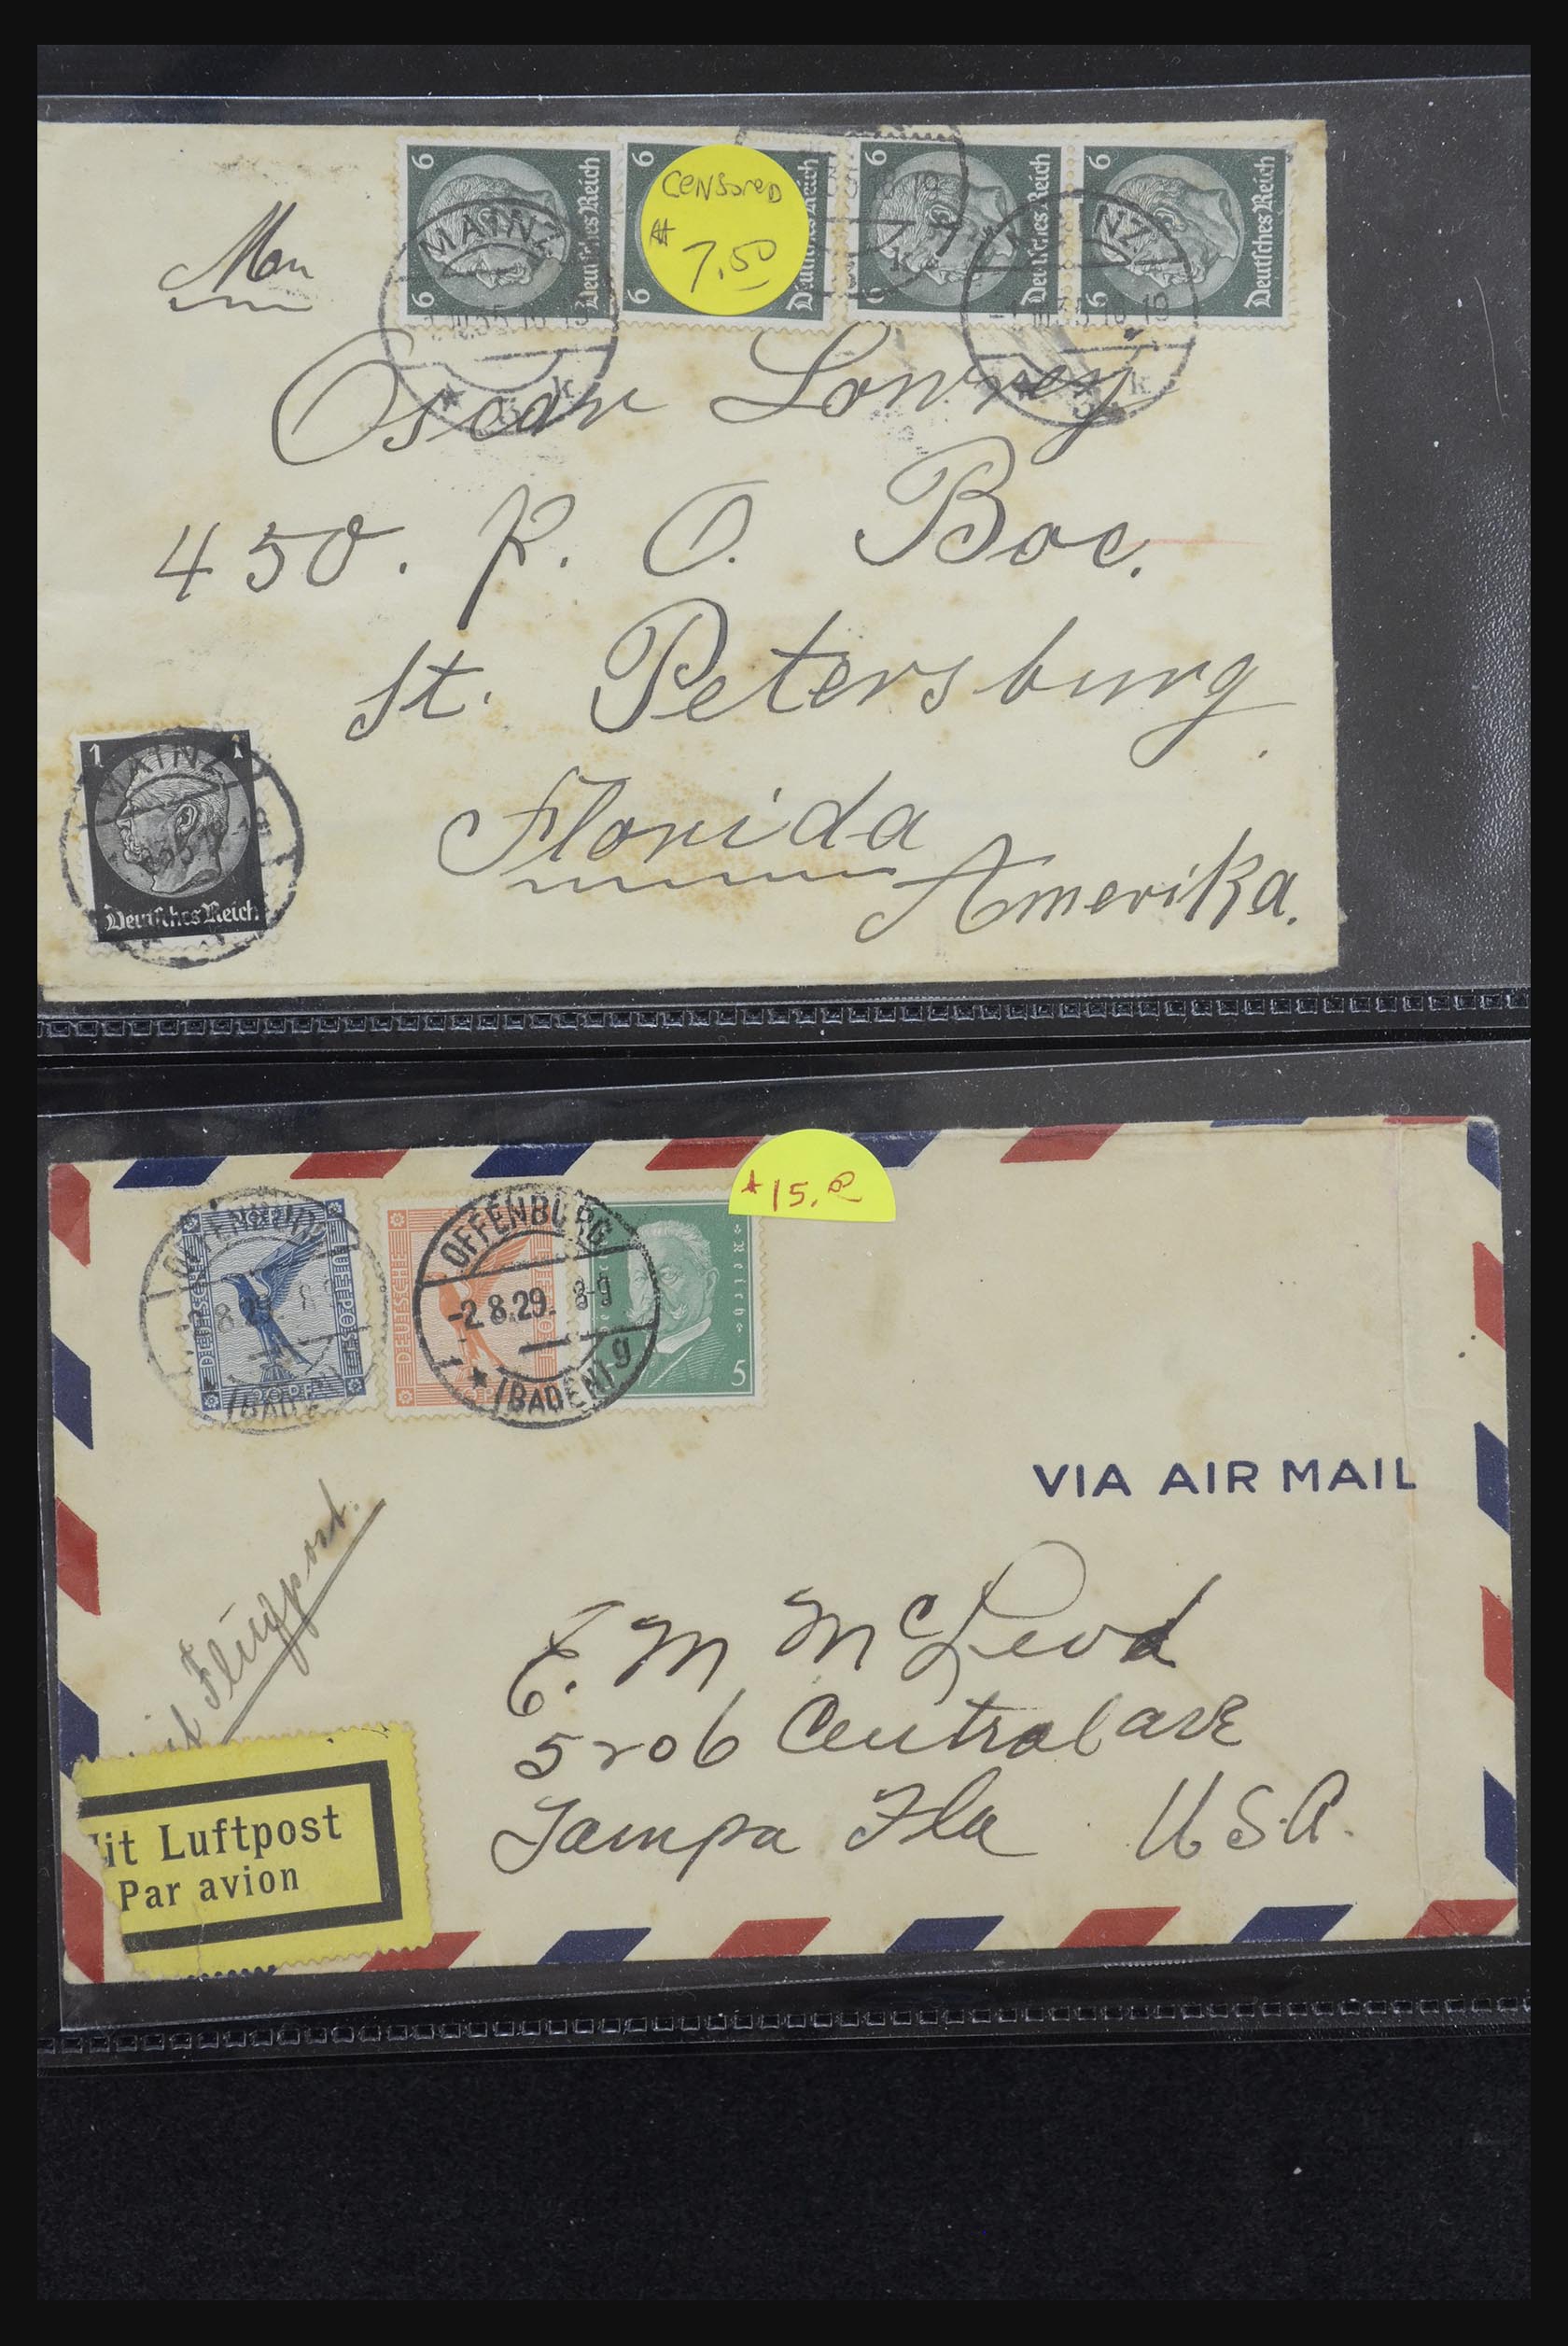 6 6 Deutsches Reich
CENSORED
$ 7.50
6 6 Deutsches Reich
6 6 Deutsches Reich
6 6 Deutsches Reich
MAINZ
k
MAINZ
k
Oscar Lowrey
450. P. O. Boc.
St. Petersburg.
Florida
Amerika.
1 1
MAINZ
Deutsches Reich
$15.00
DEUTSCHE LUFTPOST
OFFENBURG
(BADEN)
DEUTSCHE
OFFENBURG
-2.8.29. 8-9
* (BADEN) g
Reich
5
VIA AIR MAIL
Flugpost.
it Luftpost
Par avion
E. M McLeod
5206 Central ave
Tampa Fla U.S.A.